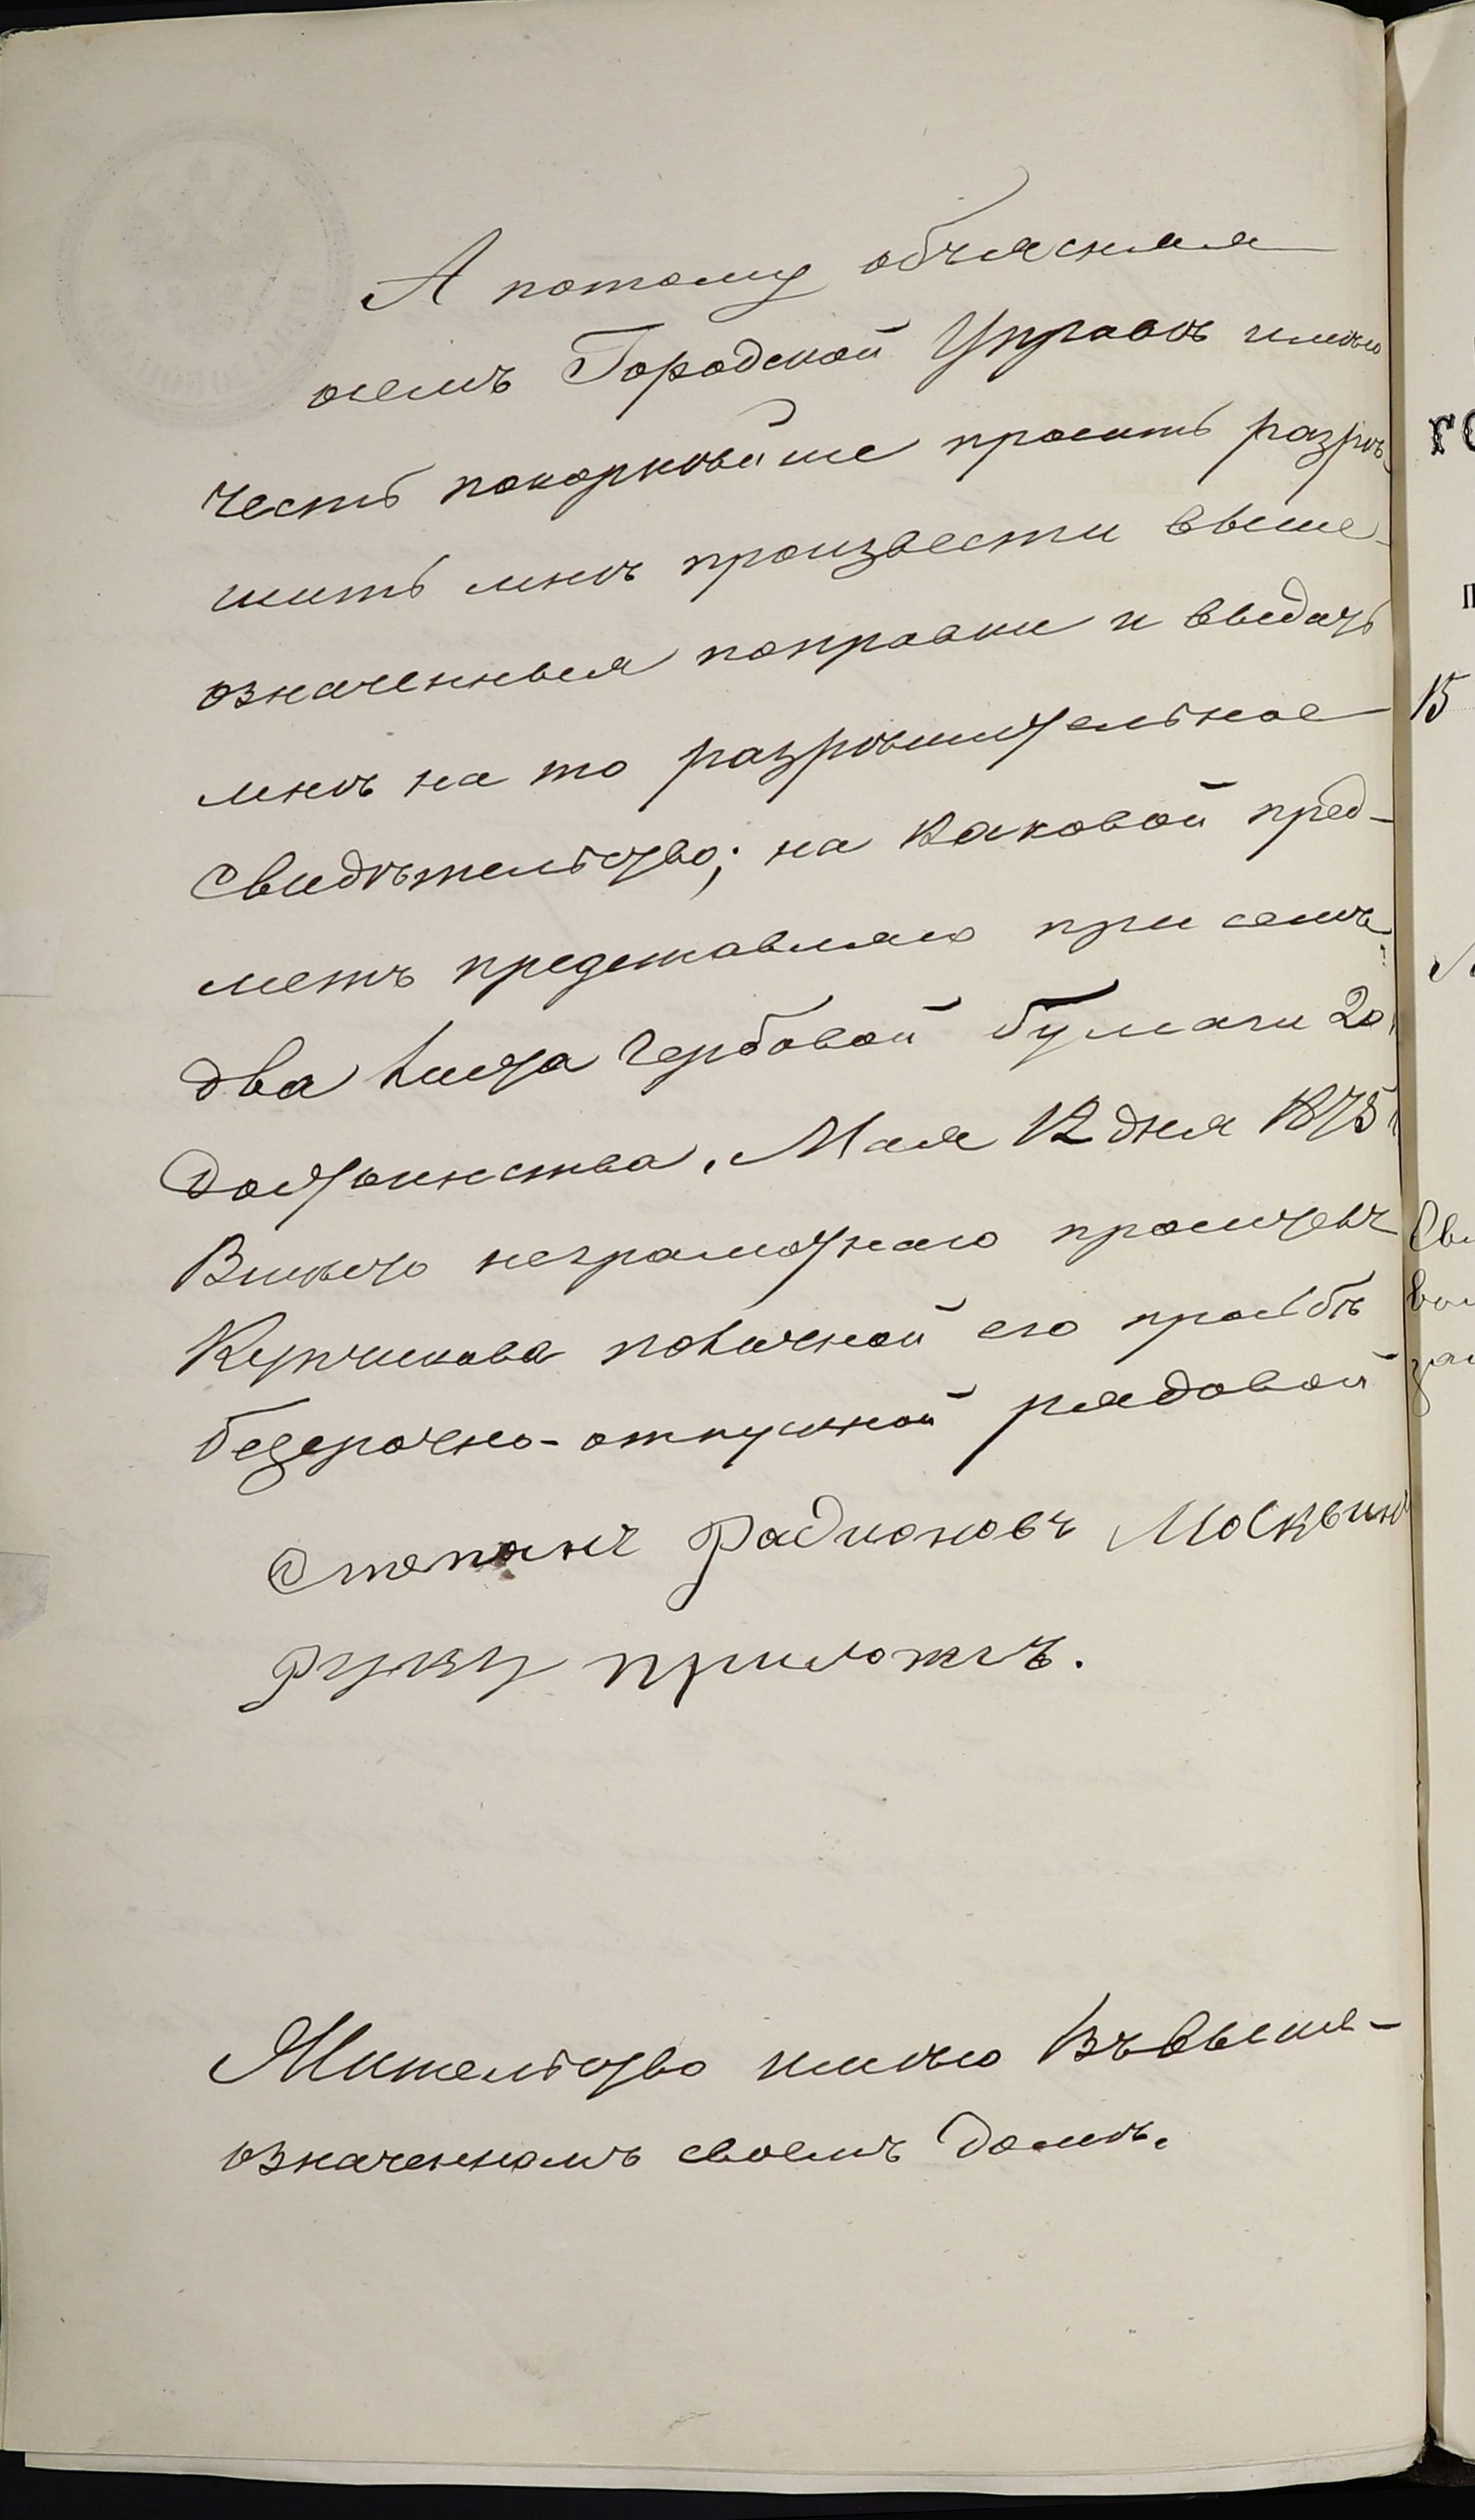 А потому объясняя
о семъ Городской Управѣ имѣю
честь покорнѣйше просить разрѣ-
шить мнѣ произвести выше-
означенныя поправки и выдать
мнѣ на то разрѣшительное
свидѣтельство; на каковой пред-
метъ представляю при семъ
два листа гербовой бумаги 20
достоинства. Мая 12 дня 1875
Вмѣсто неграмотнаго
Курчикова по личной его просьбѣ
безсрочно-отпускной рядовой
Степанъ Радионовъ Москвин
руку приложилъ.
Жительство имѣю въ выше-
означенномъ своемъ домѣ.
15